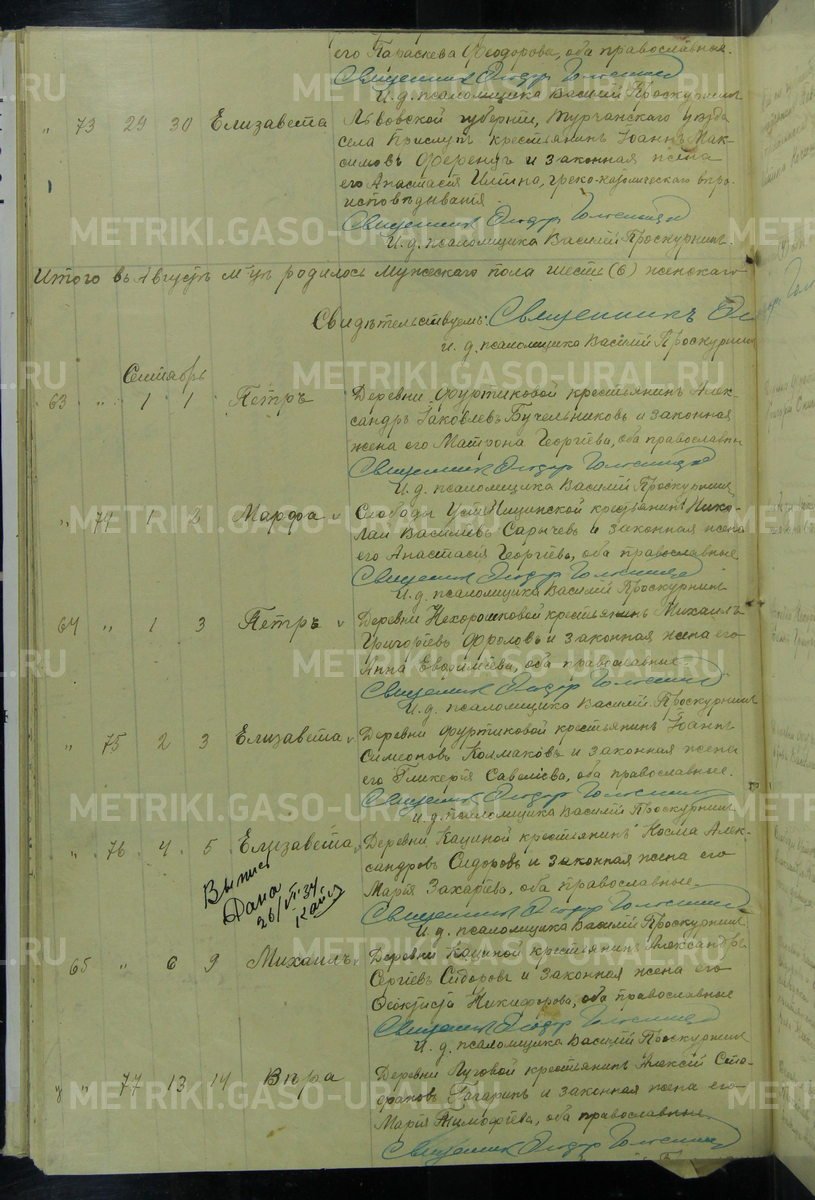 его Параскева Ѳеодорова, оба православные.
Священник Ѳеодор
И. д. псаломщика Василій Проскурнинъ
" 73 29 30 Елизавета Львовской губерніи, Турчанскаго уѣзда
села Прислупъ крестьянинъ Іоаннъ Мак-
симовъ Ференцъ и законная жена
его Анастасія Ильина, греко-католическаго вѣро-
исповѣдыванія
Священник Ѳеодор
И. д. псаломщика Василій Проскурнинъ.
Итого въ Августѣ м-цѣ родилось мужескаго пола шесть (6) женскаго
Свидѣтельствуемъ: Священникъ
и. д. псаломщика Василій Проскурнин
Сентябрь
63 " 1 1 Петръ Деревни Фуртиковой крестьянинъ Алек-
сандръ Іаковлевъ Бучельниковъ и законная
жена его Матрона Георгіева, оба православны
Священник Ѳеодор
И. д. псаломщика Василій Проскурнинъ
" 74 1 2 Марѳа Слободы Усть Ницинской крестьянинъ Нико-
лай Васильевъ Сарычевъ и законная жена
его Анастасія Георгіева, оба православные
Священник Ѳеодор
И. д. псаломщика Василій Проскурнинъ
64 " 1 3 Петръ Деревни Нехорошковой крестьянинъ Михаилъ
Григорьевъ Фроловъ и законная жена его
Анна Евѳиміева, оба православные
Священник Ѳеодор
И. д. псаломщика Василій Проскурнинъ
" 75 2 3 Елизавета Деревни Фуртиковой крестьянинъ Іоаннъ
Симеоновъ Колмаковъ и законная жена
его Гликерія Савеліева, оба православные.
Священник Ѳеодор
И. д. псаломщика Василій Проскурнинъ
" 76 4 5 Елизавета Деревни Кациной крестьянинъ Косма Алек-
сандровъ Сидоровъ и законная жена его
Марія Захаріева, оба православные.
Выпись
Дана
26/VI-34
Священник Ѳеодор
И. д. псаломщика Василій Проскурнинъ
65 " 6 9 Михаилъ Деревни Кациной крестьянинъ Александръ
Сергіевъ Сидоровъ и законная жена его
Ѳеоктиста Никифорова, оба православные
Священник Ѳеодор
И. д. псаломщика Василій Проскурнинъ
" 77 13 14 Вѣра Деревни Луговой крестьянинъ Алексій Сте-
фановъ Гагаринъ и законная жена его
Марія Тимофіева, оба православные.
Священник Ѳеодор
METRIKI.GASO-URAL.RU